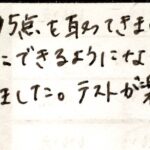 95点を取ってきま
にできるようにな
ました。テストが楽